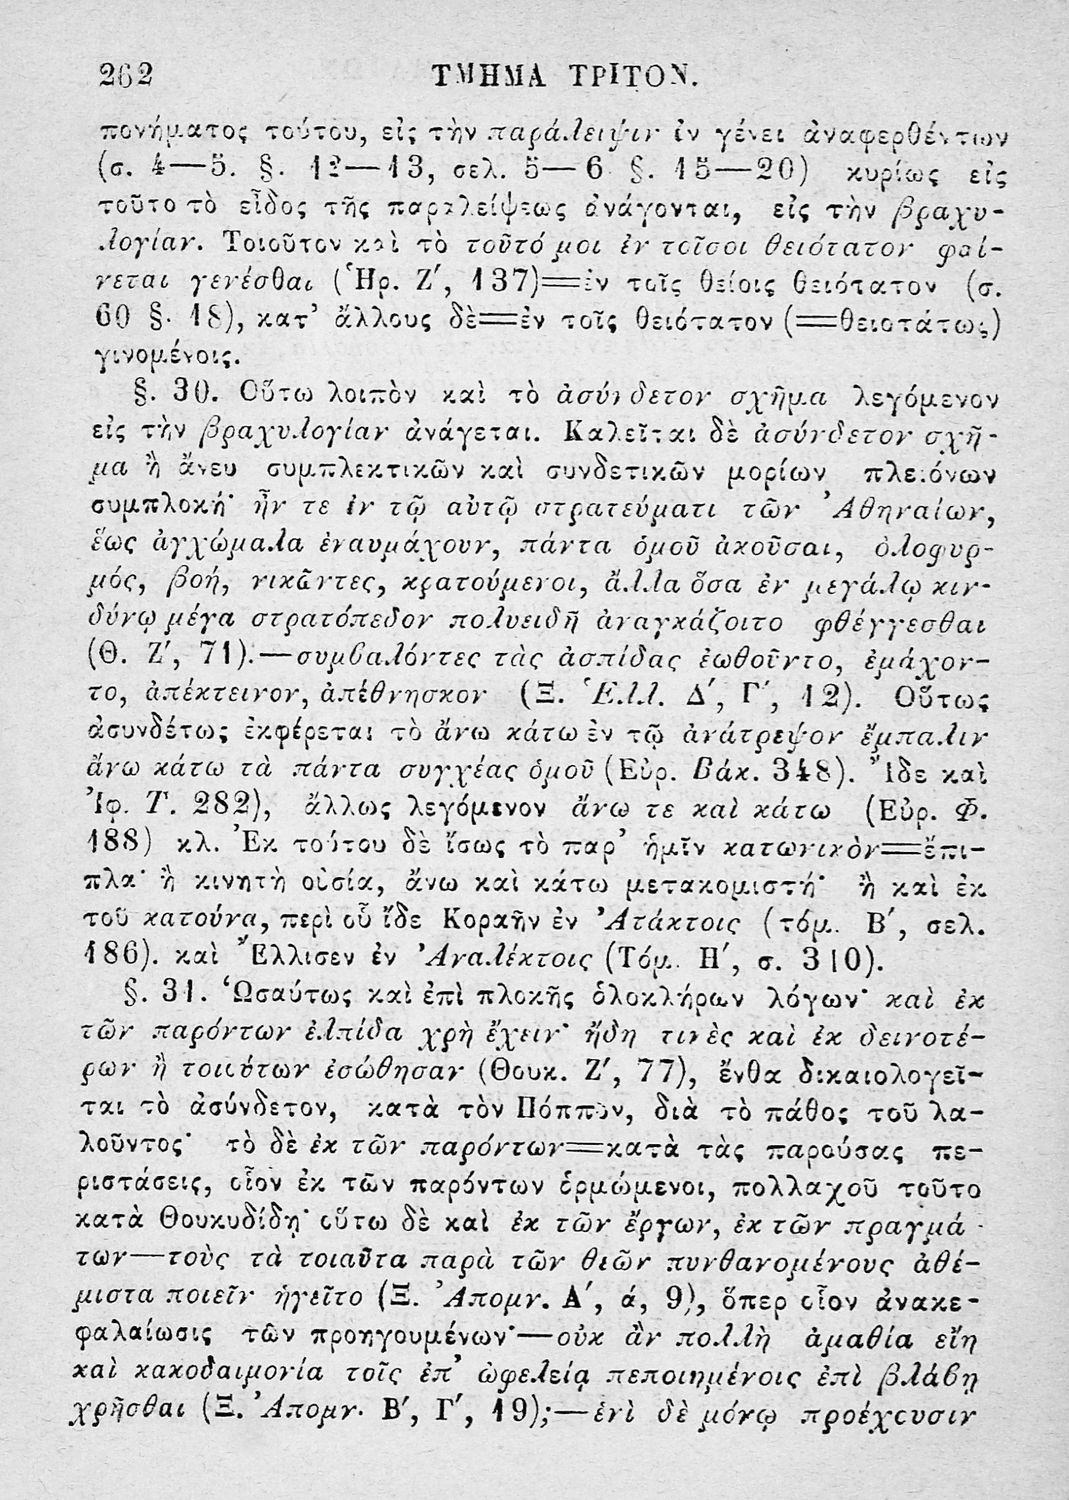 262 ΤΜΗΜΑ ΤΡΙΤΟΝ.
πονήματος τούτου, εἰς τὴν παράλειψιν ἐν γένει ἀναφερθέντων
(σ. 4—5. §. 12—13, σελ. 5—6 §. 15—20) κυρίως εἰς
τοῦτο τὸ εἶδος τῆς παραλείψεως ἀνάγονται, εἰς τὴν βραχυ-
λογίαν. Τοιοῦτον καὶ τὸ τοῦτό μοι ἐν τοῖσοι θειότατον φαί-
νεται γενέσθαι (Ἡρ. Ζʹ, 137)=ἐν τοῖς θείοις θειότατον (σ.
60 §. 18), κατ’ ἄλλους δὲ=ἐν τοῖς θειότατον (=θειοτάτως)
γινομένοις.
§. 30. Οὕτω λοιπὸν καὶ τὸ ἀσύνδετον σχῆμα λεγόμενον
εἰς τὴν βραχυλογίαν ἀνάγεται. Καλεῖται δὲ ἀσύνδετον σχῆ-
μα ἢ ἄνευ συμπλεκτικῶν καὶ συνδετικῶν μορίων πλειόνων
συμπλοκή· ἦν τε ἐν τῷ αὐτῷ στρατεύματι τῶν Ἀθηναίων,
ἕως ἀγχώμαλα ἐναυμάχουν, πάντα ὁμοῦ ἀκοῦσαι, ὀλοφυρ-
μός, βοή, νικῶντες, κρατούμενοι, ἄλλα ὅσα ἐν μεγάλῳ κιν-
δύνῳ μέγα στρατόπεδον πολυειδῆ ἀναγκάζοιτο φθέγγεσθαι
(Θ. Ζʹ, 71).—συμβαλόντες τὰς ἀσπίδας ἐωθοῦντο, ἐμάχον-
το, ἀπέκτεινον, ἀπέθνησκον (Ξ. Ἑλλ. Δʹ, Γʹ, 12). Οὕτως
ἀσυνδέτως ἐκφέρεται τὸ ἄνω κάτω ἐν τῷ ἀνάτρεψον ἔμπαλιν
ἄνω κάτω τὰ πάντα συγχέας ὁμοῦ (Εὐρ. Βάκ. 348). Ἴδε καὶ
Ἰφ. Τ. 282), ἄλλως λεγόμενον ἄνω τε καὶ κάτω (Εὐρ. Φ.
188) κλ. Ἐκ τούτου δὲ ἴσως τὸ παρ’ ἡμῖν κατωνικὸν=ἔπι-
πλα· ἢ κινητὴ οὐσία, ἄνω καὶ κάτω μετακομιστή· ἢ καὶ ἐκ
τοῦ κατούνα, περὶ οὗ ἴδε Κοραῆν ἐν Ἀτάκτοις (τόμ. Βʹ, σελ.
186). καὶ Ἔλλισεν ἐν Ἀναλέκτοις (Τόμ. Ηʹ, σ. 310).
§. 31. Ὡσαύτως καὶ ἐπὶ πλοκῆς ὁλοκλήρων λόγων· καὶ ἐκ
τῶν παρόντων ἐλπίδα χρὴ ἔχειν· ἤδη τινὲς καὶ ἐκ δεινοτέ-
ρων ἢ τοιούτων ἐσώθησαν (Θουκ. Ζʹ, 77), ἔνθα δικαιολογεῖ-
ται τὸ ἀσύνδετον, κατὰ τὸν Πόππον, διὰ τὸ πάθος τοῦ λα-
λοῦντος· τὸ δὲ ἐκ τῶν παρόντων=κατὰ τὰς παρούσας πε-
ριστάσεις, οἷον ἐκ τῶν παρόντων ὁρμώμενοι, πολλαχοῦ τοῦτο
κατὰ Θουκυδίδῃ· οὕτω δὲ καὶ ἐκ τῶν ἔργων, ἐκ τῶν πραγμά-
των—τοὺς τὰ τοιαῦτα παρὰ τῶν θεῶν πυνθανομένους ἀθέ-
μιστα ποιεῖν ἡγεῖτο (Ξ. Ἀπομν. Αʹ, ά, 9), ὅπερ οἷον ἀνακε-
φαλαίωσις τῶν προηγουμένων·—οὐκ ἂν πολλὴ ἀμαθία εἴη
καὶ κακοδαιμονία τοῖς ἐπ’ ὠφελείᾳ πεποιημένοις ἐπὶ βλάβῃ
χρῆσθαι (Ξ. Ἀπομν. Βʹ, Γʹ, 19);—ἑνὶ δὲ μόνῳ προέχουσιν